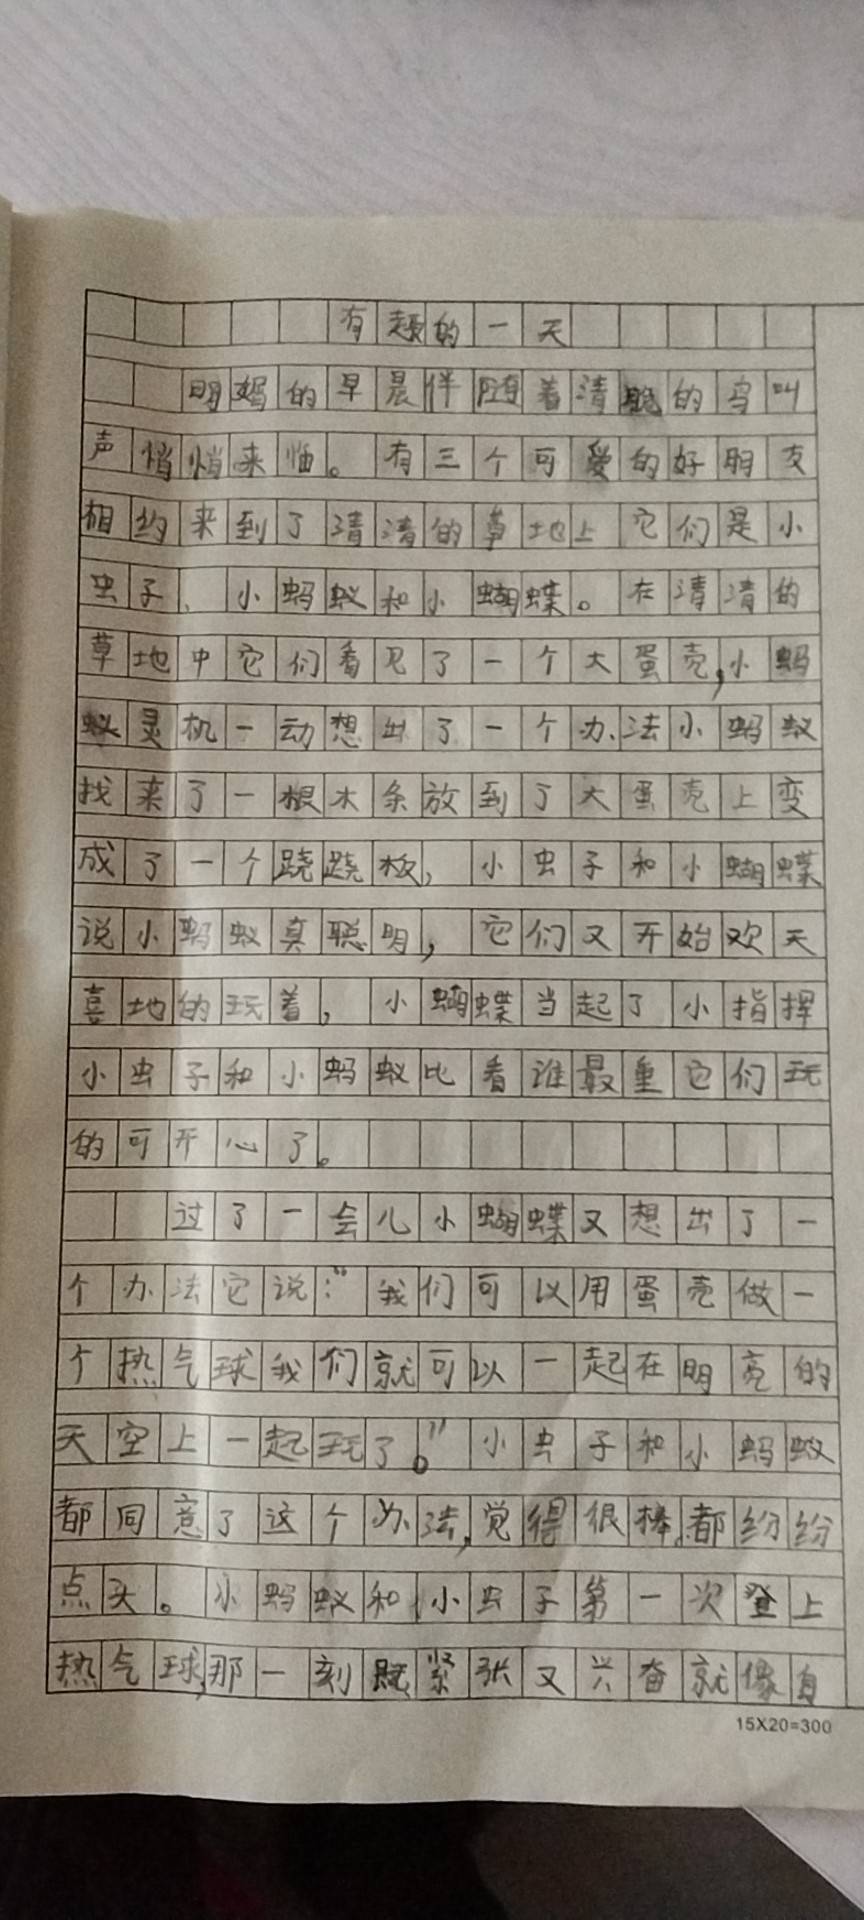 有趣的一天
明媚的早晨伴随着清脆的鸟叫
声悄悄来临。有三个可爱的好朋友
相约来到了清清的草地上它们是小
虫子、小蚂蚁和小蝴蝶。在清清的
草地中它们看见了一个大蛋壳,小蚂
蚁灵机一动想出了一个办法小蚂蚁
找来了一根木条放到了大蛋壳上变
成了一个跷跷板,小虫子和小蝴蝶
说小蚂蚁真聪明,它们又开始欢天
喜地的玩着,小蝴蝶当起了小指挥
小虫子和小蚂蚁比看谁最重它们玩
的可开心了。
过了一会儿小蝴蝶又想出了一
个办法它说:“我们可以用蛋壳做一
个热气球我们就可以一起在明亮的
天空上一起玩了。”小虫子和小蚂蚁
都同意了这个办法,觉得很棒,都纷纷
点头。小蚂蚁和小虫子第一次登上
热气球,那一刻既紧张又兴奋就像身
15X20=300